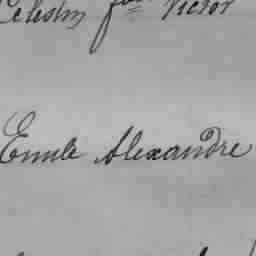 Celestin fois Victor
Emile Alexandre